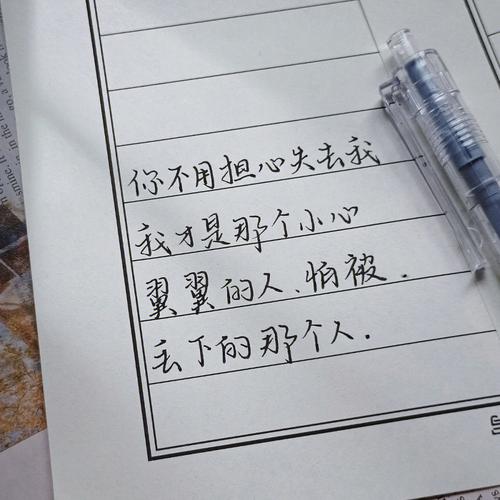 你不用担心失去我
我才是那个小心
翼翼的人、怕被.
丢下的那个人.